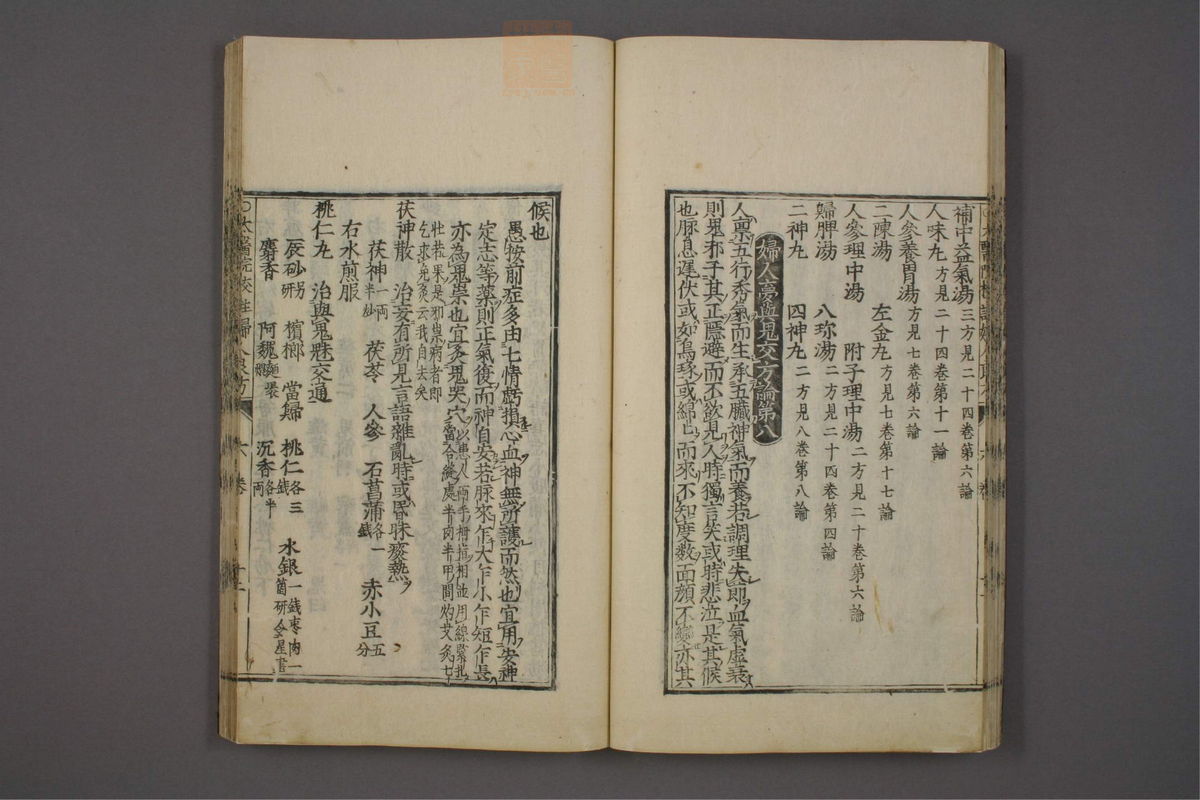 補中益氣湯 三方見二十四卷第六論
八味丸 方見二十四卷第十一論
人參養胃湯 方見七卷第六論
二陳湯 左金丸 方見七卷第十七論
人參理中湯 附子理中湯 二方見二十卷第六論
歸脾湯 八珍湯 二方見二十四卷第四論
二神丸 四神丸 二方見八卷第八論
婦人夢與鬼交方論第八
人稟五行秀氣而生承五臟神氣而養若調理失節血氣虛衰
則鬼邪干其正隱避而不欲見人時獨言笑或時悲泣是其候
也脉息遲伏或如鳥啄或綿〻而來不知度數面顏不變亦其
候也
愚按前症多由七情虧損心血神無所護而然也宜用安神
定志等藥則正氣復而神自安若脉來乍大乍小乍短乍長
亦為鬼祟也宜灸鬼哭穴 以患人兩手拇指相並用線緊扎當合縫處半肉半甲間灼艾灸七
壯若果是邪祟病者即乞求免灸云我自去矣
茯神散 治妄有所見言語雜亂時或昏昧發熱
茯神一兩半炒 茯苓 人參 石菖蒲各一錢 赤小豆五分
右水煎服
桃仁丸 治與鬼魅交通
辰砂另研 檳榔 當歸 桃仁各三錢 水銀一錢棗肉一箇研令星盡
麝香 阿魏麵裹煨 沉香各半兩
○太醫院校註婦人良方
六卷